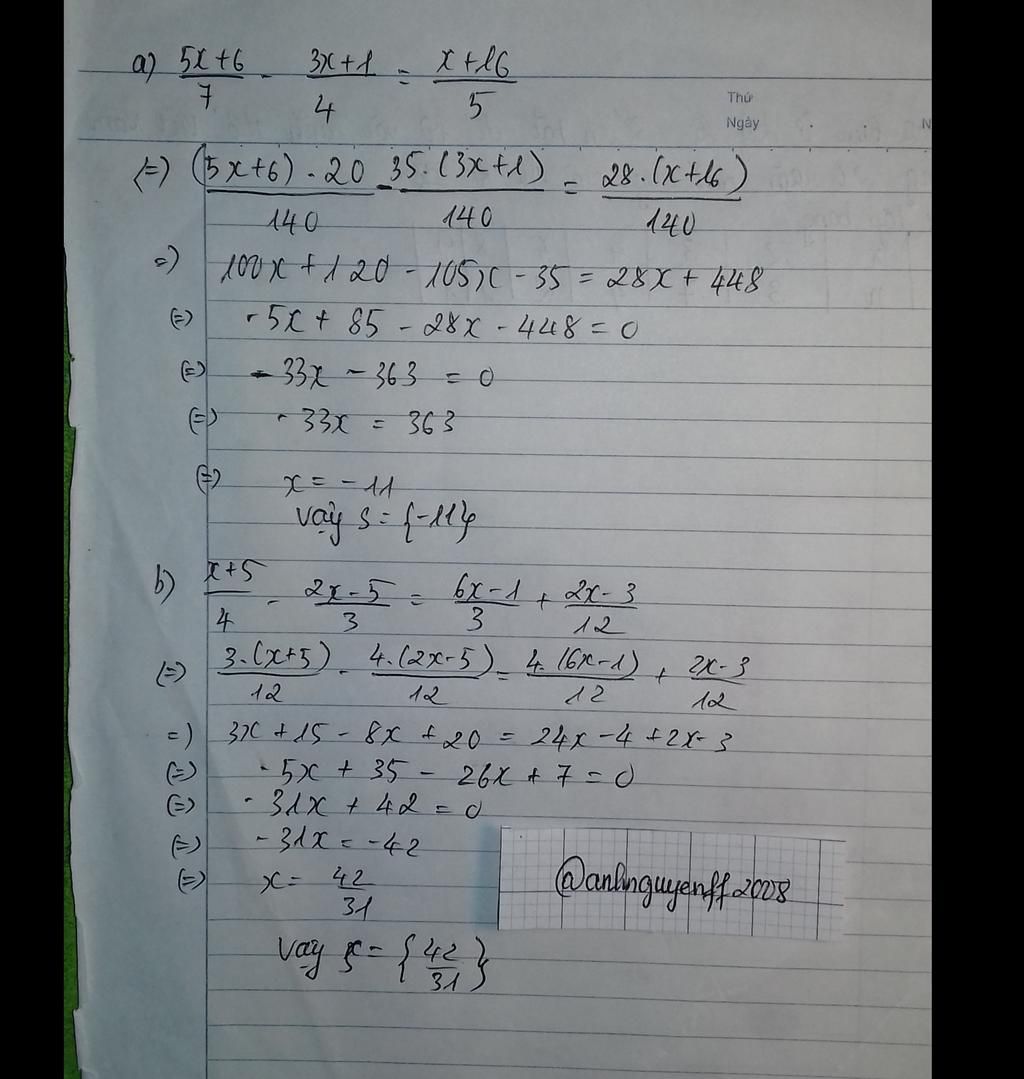 a) \frac{5x+6}{7} - \frac{3x+1}{4} = \frac{x+16}{5}
Thứ
Ngày
(=) \frac{(5x+6).20}{140} - \frac{35.(3x+1)}{140} = \frac{28.(x+16)}{140}
=) 100x + 120 - 105x - 35 = 28x + 448
(=) -5x + 85 - 28x - 448 = 0
(=) -33x - 363 = 0
(=) -33x = 363
(=) x = -11
Vậy S = {-11}
b) \frac{x+5}{4} - \frac{2x-5}{3} = \frac{6x-1}{3} + \frac{2x-3}{12}
(=) \frac{3.(x+5)}{12} - \frac{4.(2x-5)}{12} = \frac{4.(6x-1)}{12} + \frac{2x-3}{12}
=) 3x + 15 - 8x + 20 = 24x - 4 + 2x - 3
(=) -5x + 35 - 26x + 7 = 0
(=) -31x + 42 = 0
(=) -31x = -42
(=) x = \frac{42}{31}
Vậy S = {\frac{42}{31}}
@anhnguyenff2008